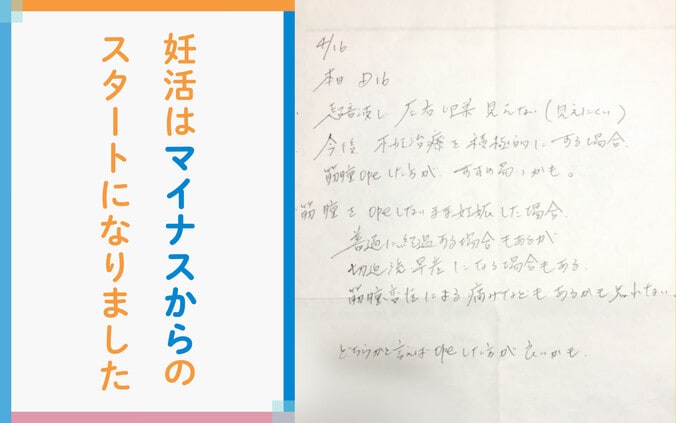 妊活はマイナスからの
スタートになりました
4/16
本日 D16
超音波し 左右卵巣見えない(見えにくい)
今後 不妊治療を積極的にする場合
筋腫opeした方が すすめ易いかも。
筋腫をopeしないまま妊娠した場合
普通に経過する場合もあるが
切迫流早産になる場合もある.
筋腫変性による痛みなどもあるかも知れない。
どちらかと言えばopeした方が良いかも.